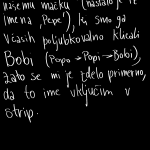 našemu mačku (nastalo je iz
imena "Pepe"), ker smo ga
včasih poljubkovalno klicali
Bobi (Popo → Popi → Bobi),
zato se mi je zdelo primerno,
da to ime vključim v
strip.